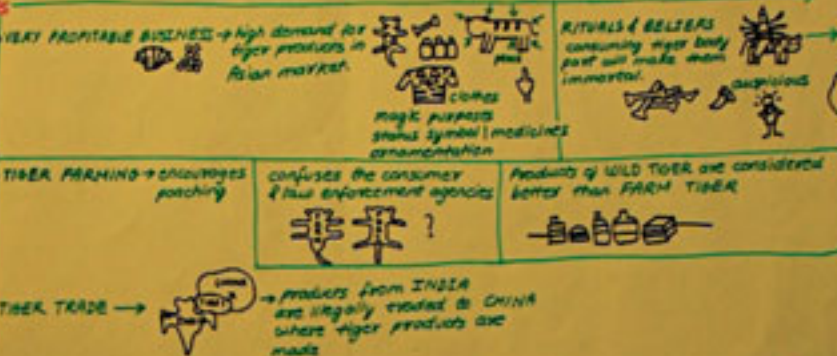 VERY PROFITABLE BUSINESS → high demand for
tiger products in
Asian market.
clothes
magic purposes
status symbol | medicines
ornamentation
RITUALS & BELIEFS
consuming tiger body
part will make them
immortal.
auspicious
TIGER FARMING → encourages
poaching
confuses the consumer
& law enforcement agencies
?
Products of WILD TIGER are considered
better than FARM TIGER
TIGER TRADE →
→ products from INDIA
are illegally traded to CHINA
where tiger products are
made